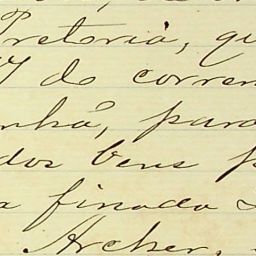 Pretoria, qu
7 do corren
nhã, para
dos bens p
a finada
Archer,